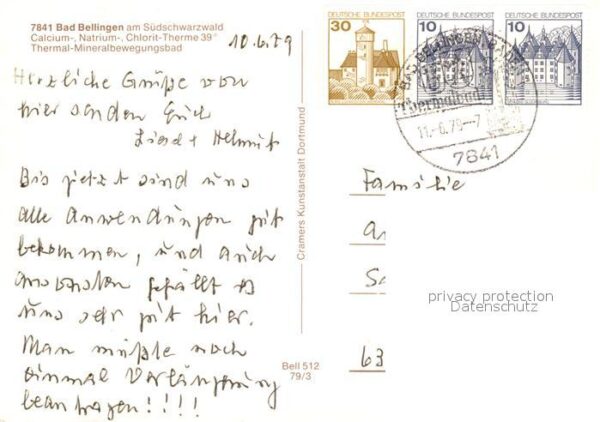 7841 Bad Bellingen am Südschwarzwald
Calcium-, Natrium-, Chlorit-Therme 39°
Thermal-Mineralbewegungsbad
10.6.79
Herzliche Grüße von
hier senden Euch
+ Helmut
Bis jetzt sind uns
alle Anwendungen gut
bekommen, und auch
ansonsten gefällt es
uns sehr gut hier.
Man müßte noch
einmal Verlängerung
beantragen!!!!
Cramers Kunstanstalt Dortmund
Bell 512
79/3
30 DEUTSCHE BUNDESPOST
10 DEUTSCHE BUNDESPOST
10 DEUTSCHE BUNDESPOST
Thermalbad
11.-6.79--7
7841
Familie
63
privacy protection
Datenschutz